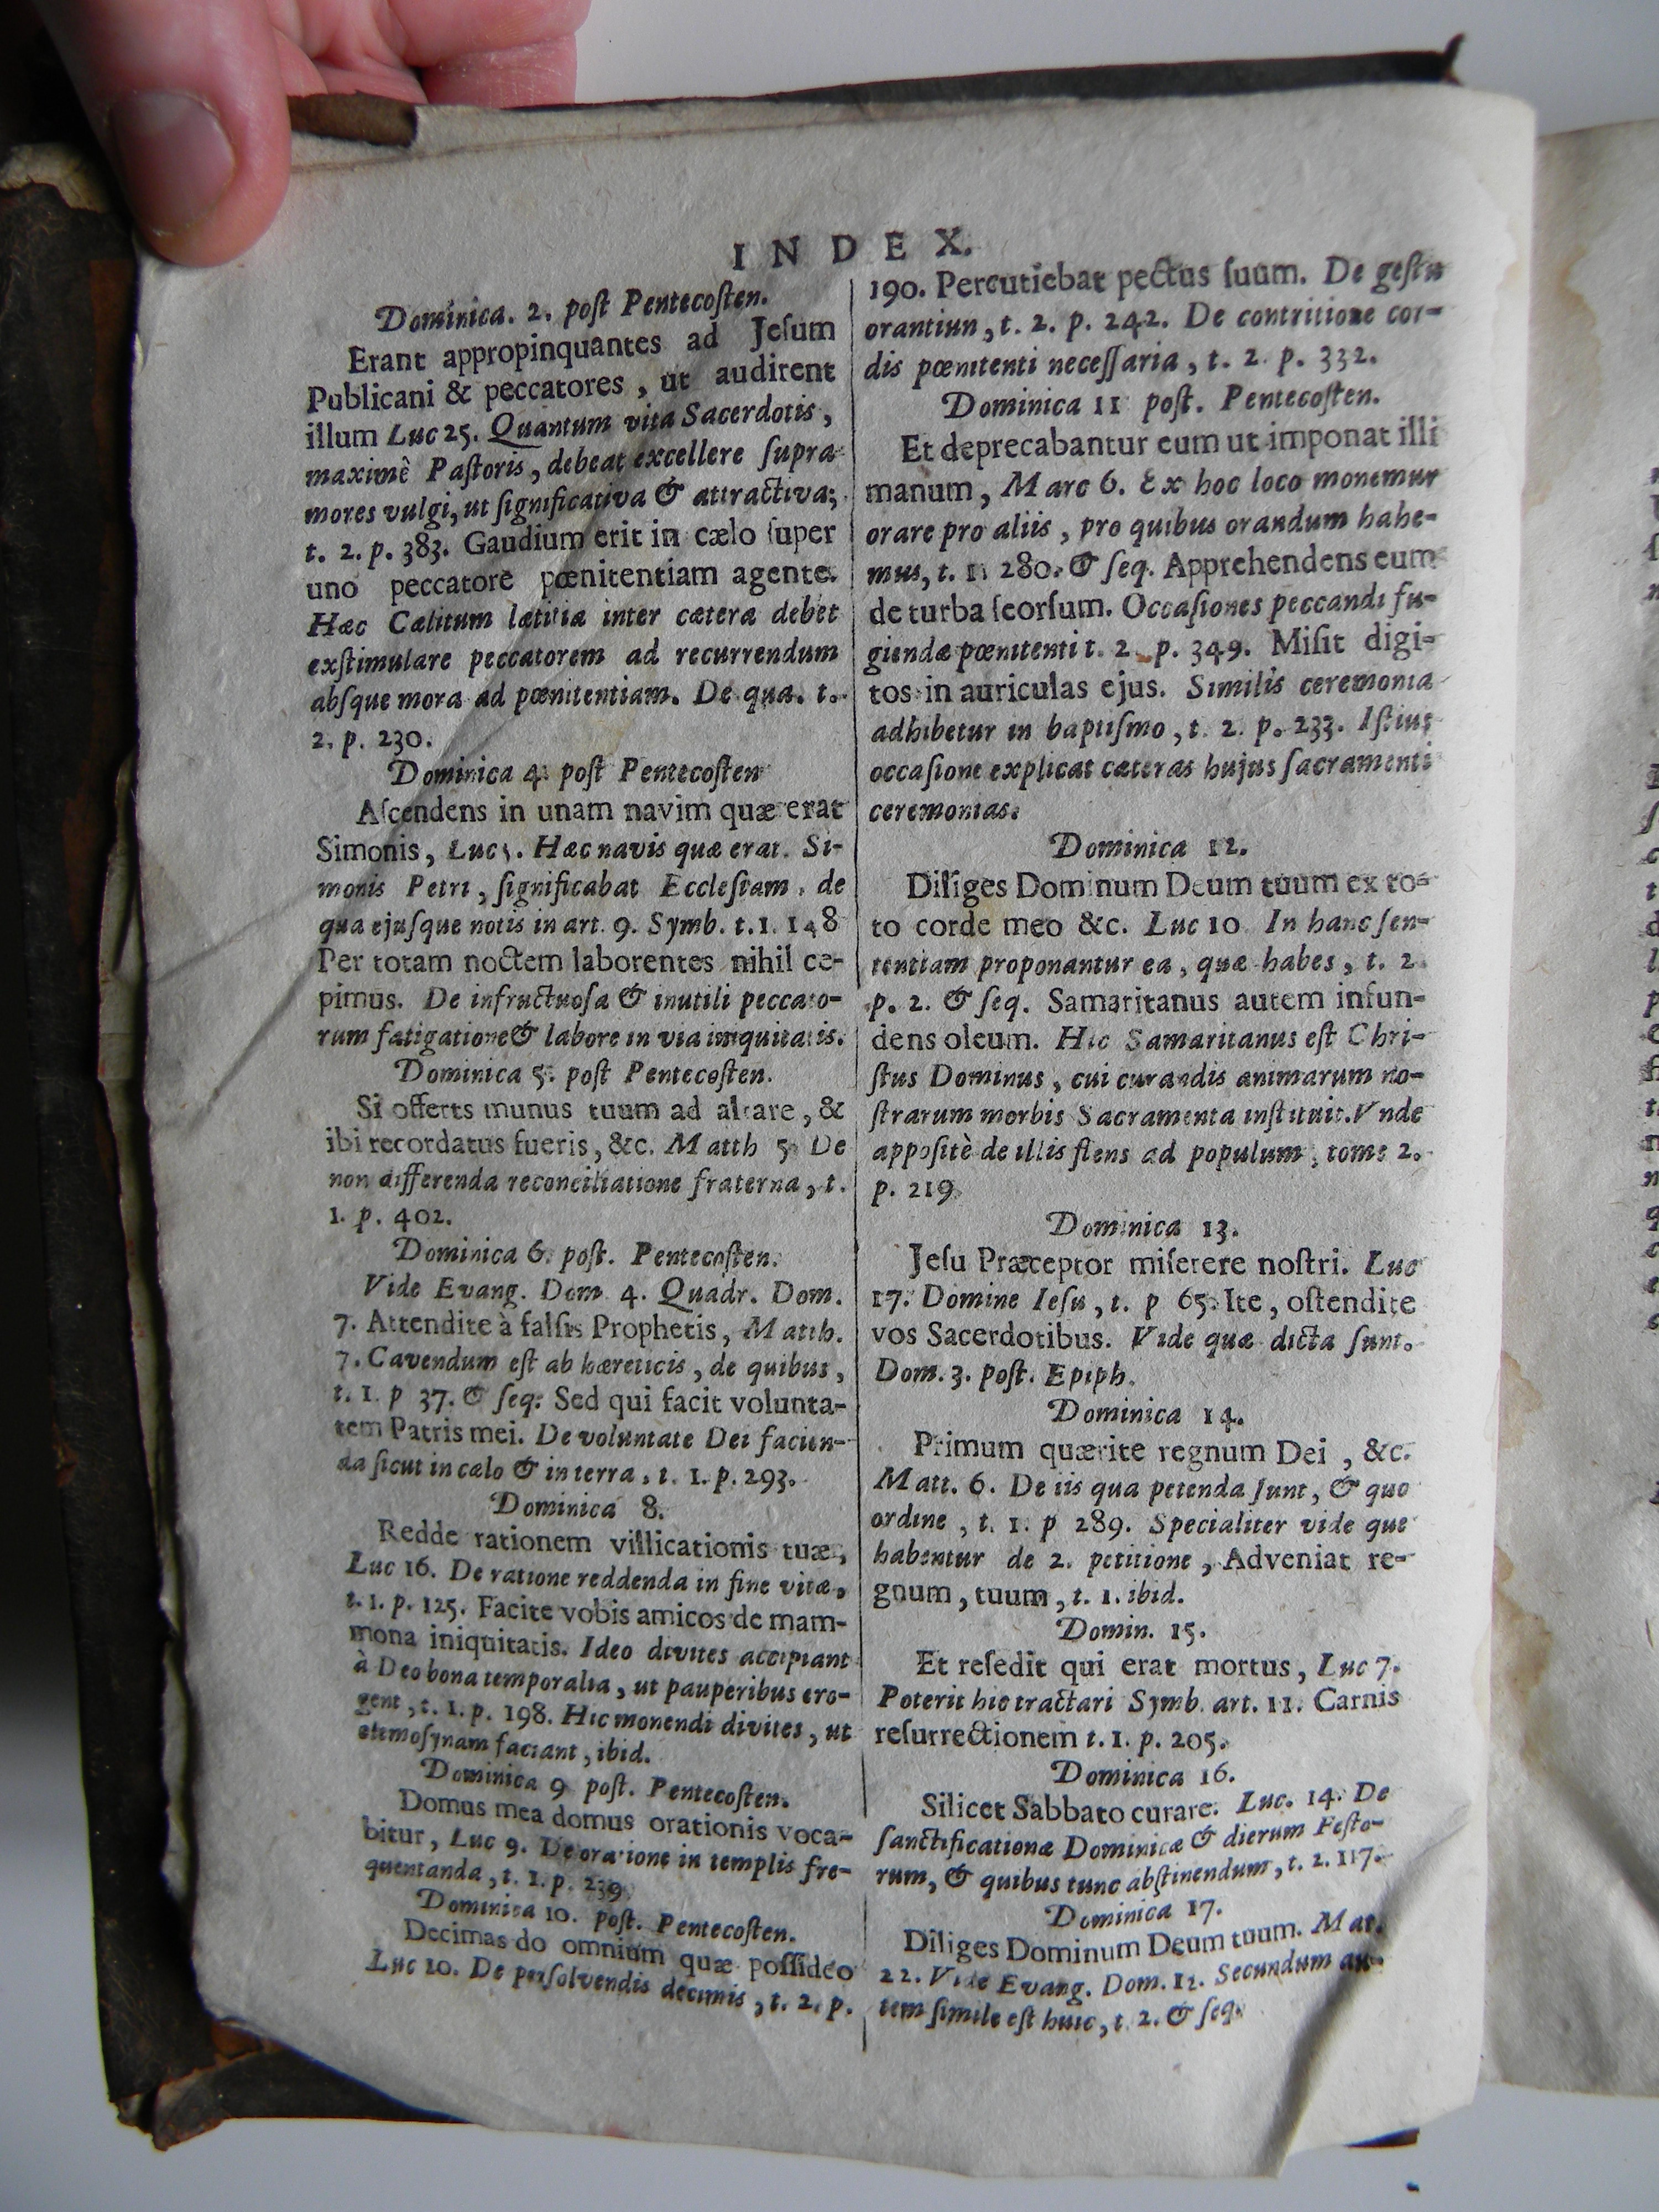 INDEX.
Dominica. 2. poſt Pentecoſten.
Erant appropinquantes ad Jeſum
Publicani & peccatores, ut audirent
illum Luc 25. Quantum vita Sacerdotis,
maximè Paſtoris, debeat excellere ſupra
mores vulgi, ut ſignificativa & attractiva;
t. 2. p. 383. Gaudium erit in cælo ſuper
uno peccatore pœnitentiam agente.
Hæc Cælitum lætitia inter cætera debet
exſtimulare peccatorem ad recurrendum
abſque mora ad pœnitentiam. De qua. t.
2. p. 230.
Dominica 4. poſt Pentecoſten
Aſcendens in unam navim quæ erat
Simonis, Luc 5. Hæc navis quæ erat. Si-
monis Petri, ſignificabat Eccleſiam, de
qua ejuſque notis in art. 9. Symb. t. 1. 148
Per totam noctem laborentes nihil ce-
pimus. De infructuoſa & inutili peccato-
rum fatigatione & labore in via iniquitatis.
Dominica 5. poſt Pentecoſten.
Si offerts munus tuum ad altare, &
ibi recordatus fueris, &c. Matth 5. De
non differenda reconciliatione fraterna, t.
1. p. 402.
Dominica 6. poſt. Pentecoſten.
Vide Evang. Dom. 4. Quadr. Dom.
7. Attendite à falſis Prophetis, Matth.
7. Cavendum eſt ab hæreticis, de quibus,
t. 1. p 37. & ſeq: Sed qui facit volunta-
tem Patris mei. De voluntate Dei facien-
da ſicut in cælo & in terra, t. 1. p. 293.
Dominica 8.
Redde rationem villicationis tuæ,
Luc 16. De ratione reddenda in fine vitæ,
t. 1. p. 125. Facite vobis amicos de mam-
mona iniquitatis. Ideo divites accipiant
à Deo bona temporalia, ut pauperibus ero-
gent, t. 1. p. 198. Hic monendi divites, ut
elemoſynam faciant, ibid.
Dominica 9 poſt. Pentecoſten.
Domus mea domus orationis voca-
bitur, Luc 9. De oratione in templis fre-
quentanda, t. 1. p. 239.
Dominica 10. poſt. Pentecoſten.
Decimas do omnium quæ poſſideo
Luc 10. De perſolvendis decimis, t. 2. p.
190. Percutiebat pectus ſuum. De geſtu
orantiun, t. 2. p. 242. De contritione cor-
dis pœnitenti neceſſaria, t. 2. p. 332.
Dominica 11 poſt. Pentecoſten.
Et deprecabantur eum ut imponat illi
manum, Marc 6. Ex hoc loco monemur
orare pro aliis, pro quibus orandum hahe-
mus, t. 1. 280. & ſeq. Apprehendens eum
de turba ſeorſum. Occaſiones peccandi fu-
giendæ pœnitenti t. 2. p. 349. Miſit digi-
tos in auriculas ejus. Similis ceremonia
adhibetur in baptiſmo, t. 2. p. 233. Iſtius
occaſione explicat cæteras hujus ſacramenti
ceremonias.
Dominica 12.
Diliges Dominum Deum tuum ex to-
to corde meo &c. Luc 10. In hanc ſen-
tentiam proponantur ea, quæ habes, t. 2.
p. 2. & ſeq. Samaritanus autem infun-
dens oleum. Hic Samaritanus eſt Chri-
ſtus Dominus, cui curandis animarum no-
ſtrarum morbis Sacramenta inſtituit. Vnde
appoſitè de illis flens ad populum, tome 2.
p. 219
Dominica 13.
Jeſu Præceptor miſerere noſtri. Luc
17. Domine Ieſu, t. p 65. Ite, oſtendite
vos Sacerdotibus. Vide quæ dicta ſunt.
Dom. 3. poſt. Epiph.
Dominica 14.
Primum quærite regnum Dei, &c.
Matt. 6. De iis qua petenda ſunt, & quo
ordine, t. 1. p 289. Specialiter vide que
habentur de 2. petitione, Adveniat re-
gnum, tuum, t. 1. ibid.
Domin. 15.
Et reſedit qui erat mortus, Luc 7.
Poterit hic tractari Symb. art. 11. Carnis
reſurrectionem t. 1. p. 205.
Dominica 16.
Silicet Sabbato curare. Luc. 14. De
ſanctificationæ Dominicæ & dierum Feſto-
rum, & quibus tunc abſtinendum, t. 2. 117.
Dominica 17.
Diliges Dominum Deum tuum. Mat.
22. Vide Evang. Dom. 12. Secundum au-
tem ſimile eſt huic, t. 2. & ſeq.